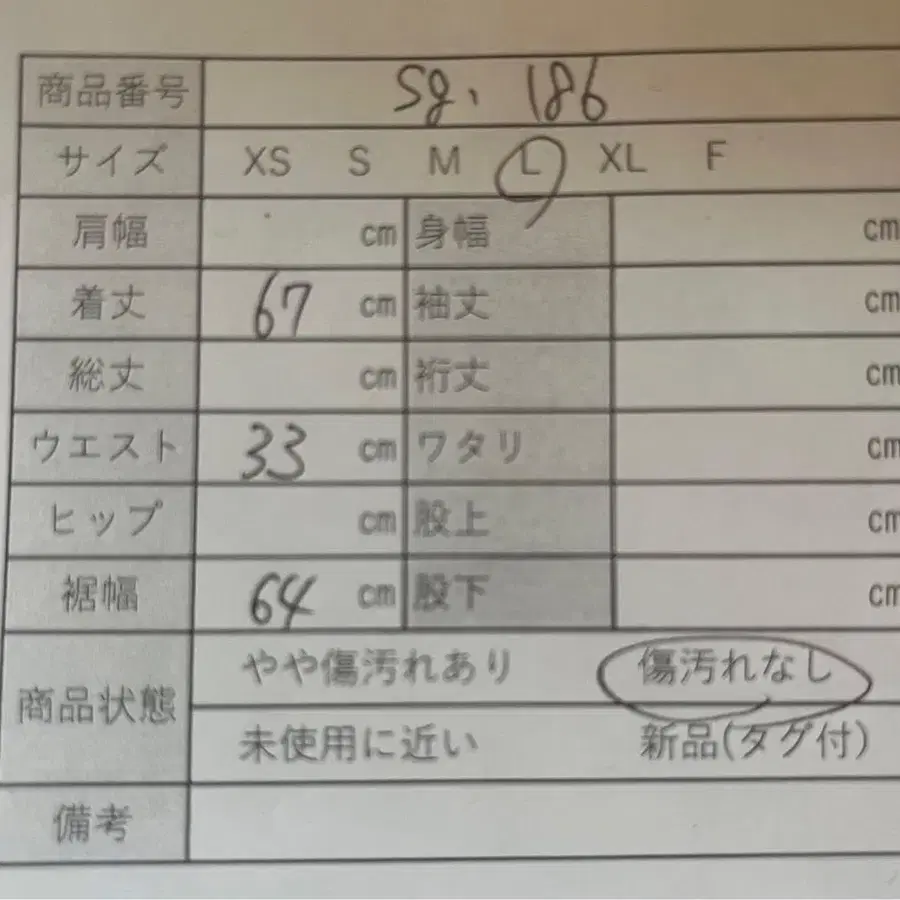 商品番号 Sg. 186
サイズ XS S M L XL F
肩幅 cm 身幅 cm
着丈 67 cm 袖丈 cm
総丈 cm 裄丈 cm
ウエスト 33 cm ワタリ cm
ヒップ cm 股上 cm
裾幅 64 cm 股下 cm
商品状態 やや傷汚れあり 傷汚れなし
未使用に近い 新品(タグ付)
備考